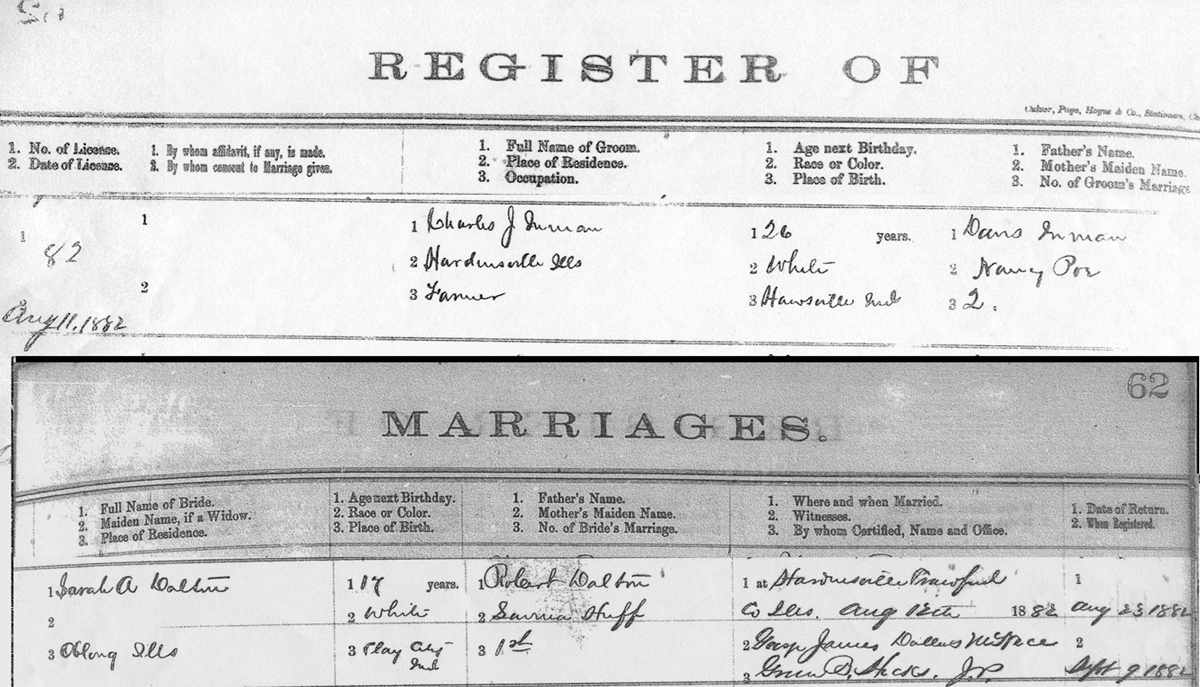 REGISTER OF
Culver, Page, Hoyne & Co., Stationers,
1. No. of License.
2. Date of License.
1. By whom affidavit, if any, is made.
2. By whom consent to Marriage given.
1. Full Name of Groom.
2. Place of Residence.
3. Occupation.
1. Age next Birthday.
2. Race or Color.
3. Place of Birth.
1. Father's Name.
2. Mother's Maiden Name.
3. No. of Groom's Marriage
1
82
Aug 11, 1882
1
2
1 Charles J Inman
2 Hardinsville Ills
3 Farmer
1 26 years.
2 White
3 Hawsville Ind
1 Davis Inman
2 Nancy Poe
3 2.
62
MARRIAGES.
1. Full Name of Bride.
2. Maiden Name, if a Widow.
3. Place of Residence.
1. Age next Birthday.
2. Race or Color.
3. Place of Birth.
1. Father's Name.
2. Mother's Maiden Name.
3. No. of Bride's Marriage.
1. Where and when Married.
2. Witnesses.
3. By whom Certified, Name and Office.
1. Date of Return.
2. When Registered.
1 Sarah A Dalton
2
3 Oblong Ills
1 17 years.
2 White
3 Clay City
Ind
1 Robert Dalton
2 Huff
3 1st
1 at Hardinsville Crawford
Co Ills. Aug 12th 1882
2 James Dallas
3 Green D. Hicks. J.P.
1
Aug 23 1882
2
Sept 9 1882